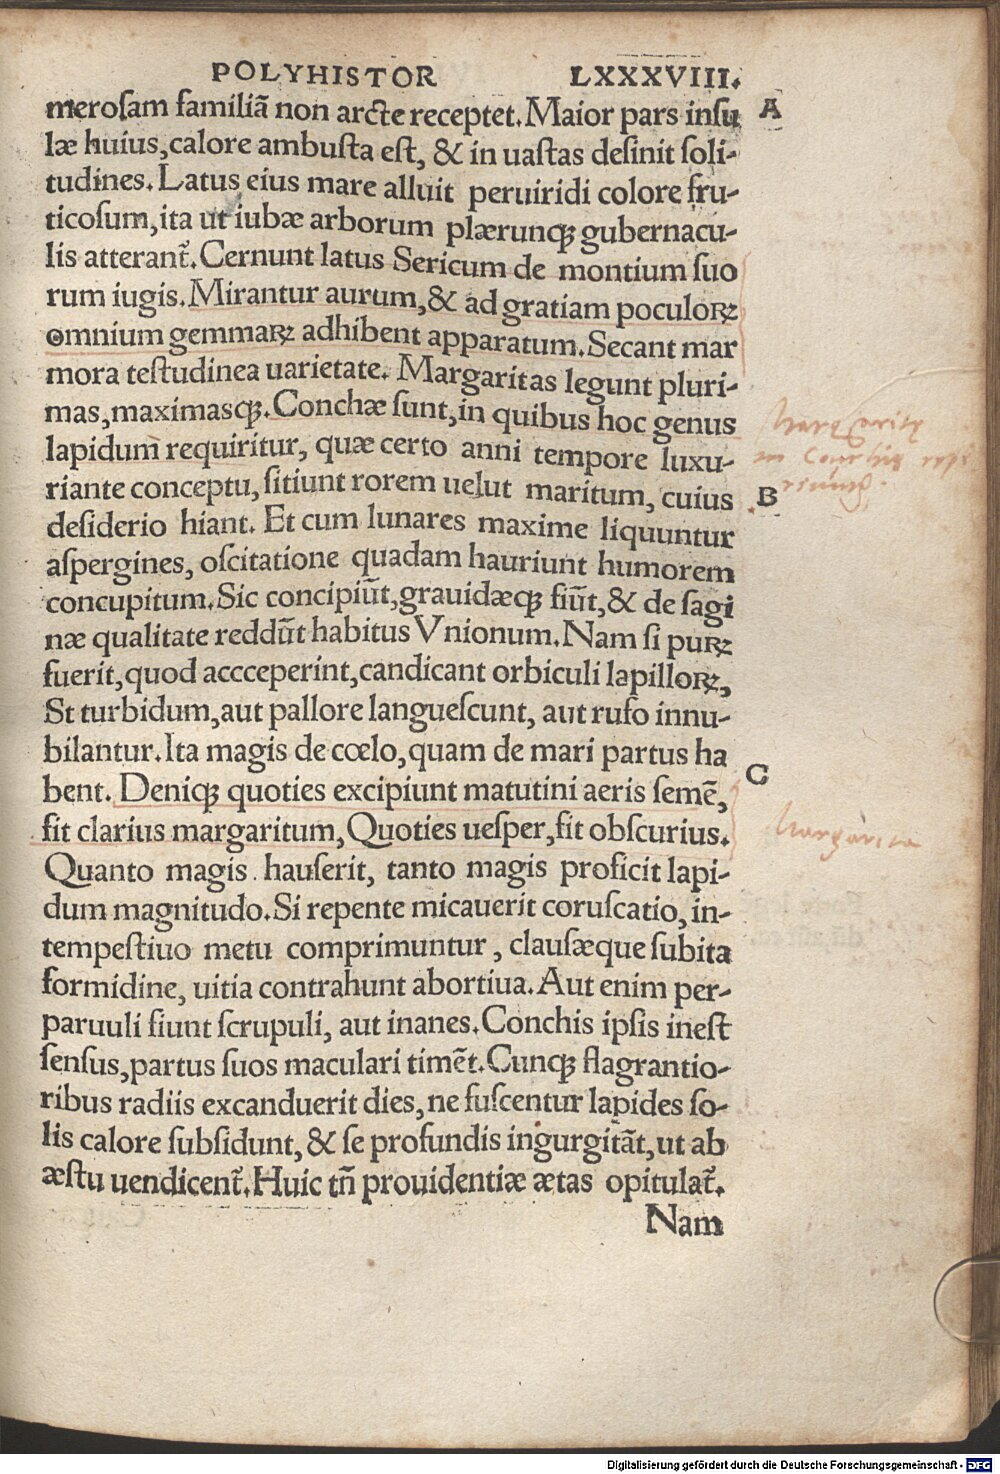 POLYHISTOR LXXXVIII.
meroſam familiã non arcte receptet. Maior pars inſu A
læ huius, calore ambuſta eſt, & in uaſtas deſinit ſoli-
tudines. Latus eius mare alluit peruiridi colore fru-
ticoſum, ita ut iubæ arborum plærunqꝫ gubernacu-
lis atterant᷑. Cernunt latus Sericum de montium ſuo
rum iugis. Mirantur aurum, & ad gratiam poculoꝝ
omnium gemmaꝝ adhibent apparatum. Secant mar
mora teſtudinea uarietate. Margaritas legunt pluri-
mas, maximasqꝫ. Conchæ ſunt, in quibus hoc genus
lapidum requiritur, quæ certo anni tempore luxu-
riante conceptu, ſitiunt rorem uelut maritum, cuius B
deſiderio hiant. Et cum lunares maxime liquuntur
aſpergines, oſcitatione quadam hauriunt humorem
concupitum. Sic concipiũt, grauidæqꝫ fiũt, & de ſagi
næ qualitate reddũt habitus Vnionum. Nam ſi puꝝ
fuerit, quod accceperint, candicant orbiculi lapilloꝝ,
St turbidum, aut pallore langueſcunt, aut rufo innu-
bilantur. Ita magis de cœlo, quam de mari partus ha
bent. Deniqꝫ quoties excipiunt matutini aeris ſemẽ, C
fit clarius margaritum, Quoties ueſper, fit obſcurius.
Quanto magis hauſerit, tanto magis proficit lapi-
dum magnitudo. Si repente micauerit coruſcatio, in-
tempeſtiuo metu comprimuntur, clauſæque ſubita
formidine, uitia contrahunt abortiua. Aut enim per-
paruuli fiunt ſcrupuli, aut inanes. Conchis ipſis ineſt
ſenſus, partus ſuos maculari timẽt. Cunqꝫ flagrantio-
ribus radiis excanduerit dies, ne fuſcentur lapides ſo-
lis calore ſubſidunt, & ſe profundis ingurgitãt, ut ab
æſtu uendicent᷑. Huic tñ prouidentiæ ætas opitulat᷑.
Nam
Margarita
Digitalisierung gefördert durch die Deutsche Forschungsgemeinschaft - DFG